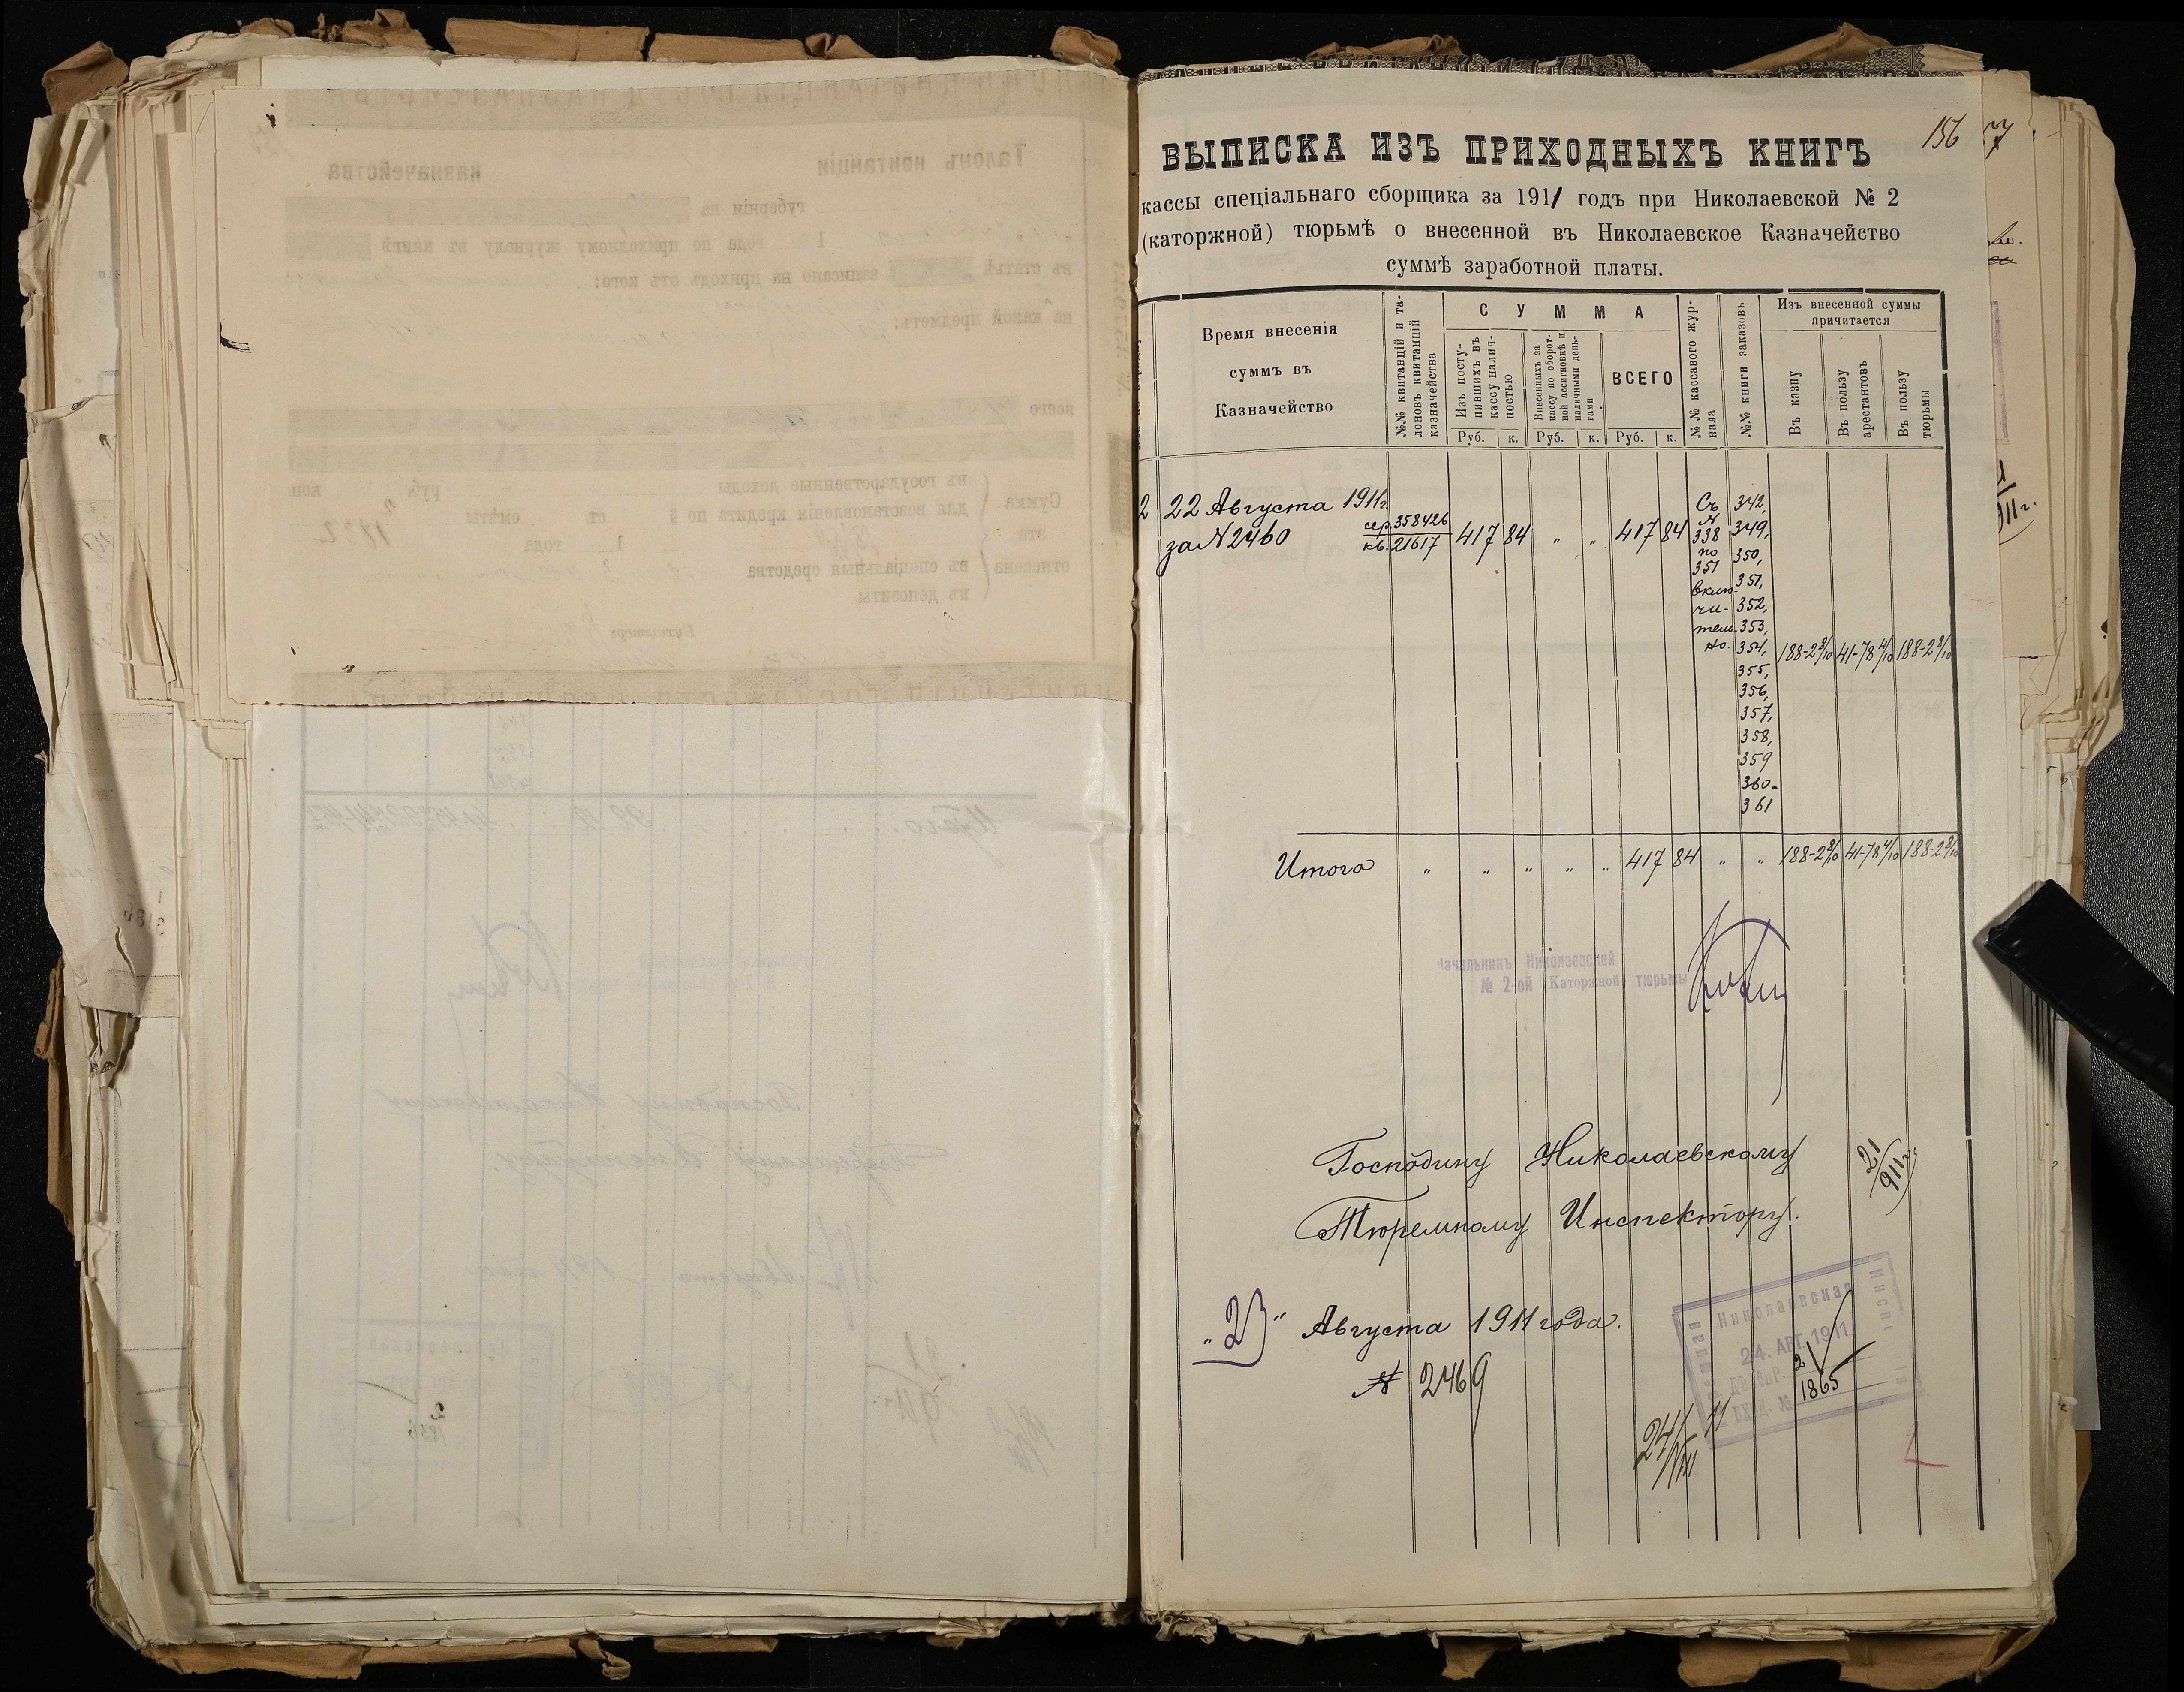 156
ВЫПИСКА ИЗЪ ПРИХОДНЫХЪ КНИГЪ
кассы спеціальнаго сборщика за 1911 годъ при Николаевской № 2
(каторжной) тюрьмѣ о внесенной въ Николаевское Казначейство
суммѣ заработной платы.
Время внесенія
суммъ въ
Казначейство
№№ квитанцій и та-
лоновъ квитанцій
казначейства
СУММА
Изъ посту-
пившихъ въ
кассу налич-
ностью
Внесенныхъ за
кассу по оборот-
ной ассигновкѣ и
наличными день-
гами
ВСЕГО
Руб. к. Руб. к. Руб. к.
№№ кассоваго жур-
нала
№№ книги заказовъ
Изъ внесенной суммы
причитается
Въ казну
Въ пользу
арестантовъ
Въ пользу
тюрьмы
2 22 Августа 1911г.
за № 2460
сер. 358426
кв. 21617
417 84 „ „ 417 84
Съ
№
338
по
351
вклю-
чи-
тель-
но.
342,
349,
350,
351,
352,
353,
354,
355,
356,
357,
358,
359
360
361
188-2 8/10 41-78 4/10 188-2 8/10
Итого „ „ „ „ „ 417 84 „ „ 188-2 8/10 41-78 4/10 188-2 8/10
Начальникъ Николаевской
№ 2-ой (Каторжной) тюрьмы
Господину Николаевскому
Тюремному Инспектору.
21/911г.
„23“ Августа 1911 года.
№ 2469
Николаевская
24. АВГ. 1911
ВХОД. №
2
1865
24/VIII 11
Талонъ квитанціи
казначейства
губерніи на
1 года по приходному журналу въ книгѣ
въ статьѣ
записано на приходъ отъ кого:
на какой предметъ:
всего
Сумма
эта
отнесена
въ государственные доходы
руб.
коп
для возстановленія кредита по §
ст.
смѣты
1 года
въ спеціальныя средства
въ депозиты
Бухгалтеръ
Итого
Господину Николаевскому
Тюремному Инспектору.